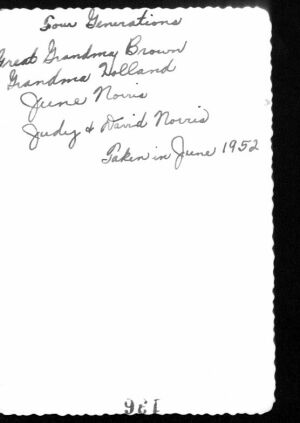 Four Generations
Great Grandma Brown
Grandma Holland
June Norris
Judy & David Norris
Taken in June 1952
196